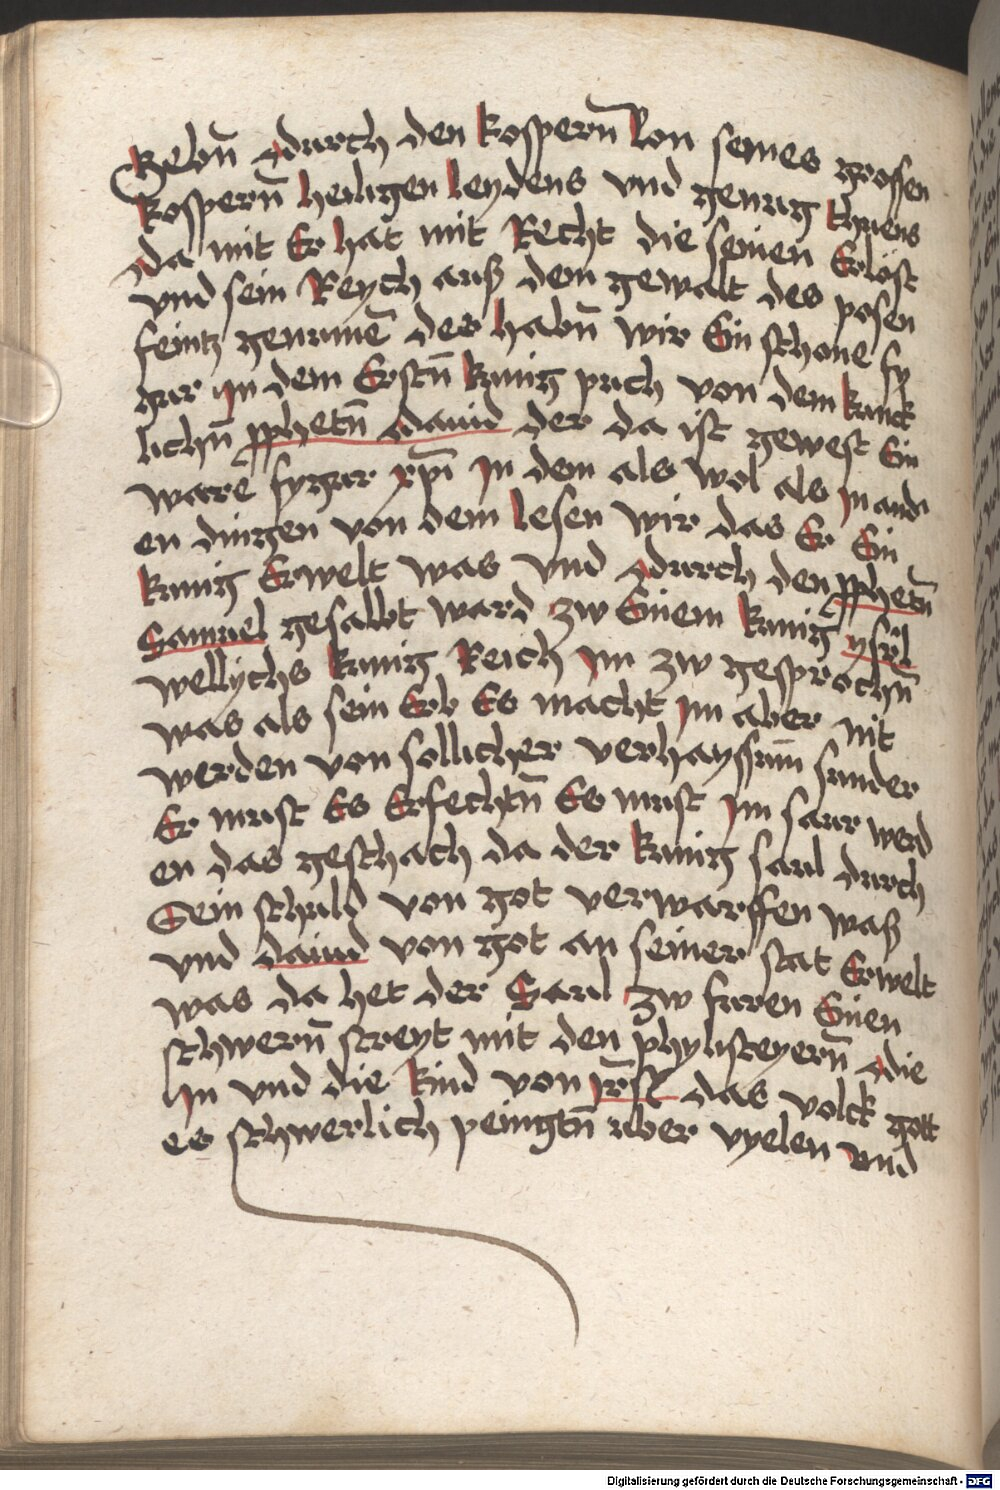 Gebn̄ durch den kospern̄ lon seines grossen
kospern̄ heiligen leydens vnd genug thuens
da mit Er hat mit Recht die seinen Erlöst
vnd sein Reych auß dem gewalt des posen
feintz genumē des habn̄ wir Ein schone fy
gur Jn dem Erstn̄ kunig puch von dem kunck
lichn̄ pphetn̄ dauid der da ist gewest Ein
ware fygur xpī Jn dem als wol als Jn andr
en dingen von dem lesen wir das Er Ein
kunig Erwelt was vnd durch den pphetn̄
Samuel gesalbt ward zw Einem kunig ysrl
wellychs kunig Reich Jm zw gesprochn̄
was als sein Erb Es macht Jm aber nit
werden von sollicher verhayssum̄ sunder
Er must Es Erfechtn̄ Es must Jm saur werd
en das geschach da der kunig saul durch
Sein schuld von got verwarffen waß
vnd dauid von got an seiner stat Erwelt
was da het der Saul zw furen Einen
schwern̄ streyt mit den phylisteyern̄ die
Jn vnd die kind von jrsl das volck gott
es schwerlich peingtn̄ uber vyelen vnd
Digitalisierung gefördert durch die Deutsche Forschungsgemeinschaft - DFG